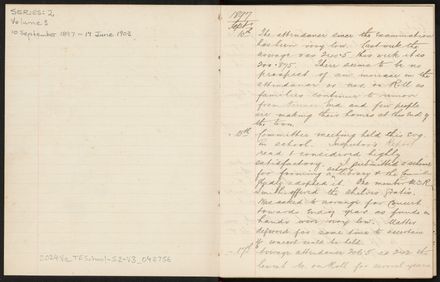 SERIES: 2
Volume 3
10 September 1897 - 14 June 1903
2024Va_TESchool-S2-V3_045756
1897
Sept.
10th The attendance since the examination
has been very low. Last week the
average was 200.5 this week it is
200.875. There seems to be no
prospect of an increase in the
attendance or nos on Roll as
families continue to remove
from Terrace End and few people
are making their homes at this end of
the town.
15th Committee meeting held this Evg.
in school. Inspector's Report
read & considered highly
satisfactory. I submitted a scheme
for forming a school library & the
adopted it. One member
offered the shelves gratis.
was asked to arrange for Concert
towards End of year as funds in
hand were very low. Matter
deferred for some time to ascertain
if concert could be held.
17th Average attendance 206.5
lowest no. on Roll for several years